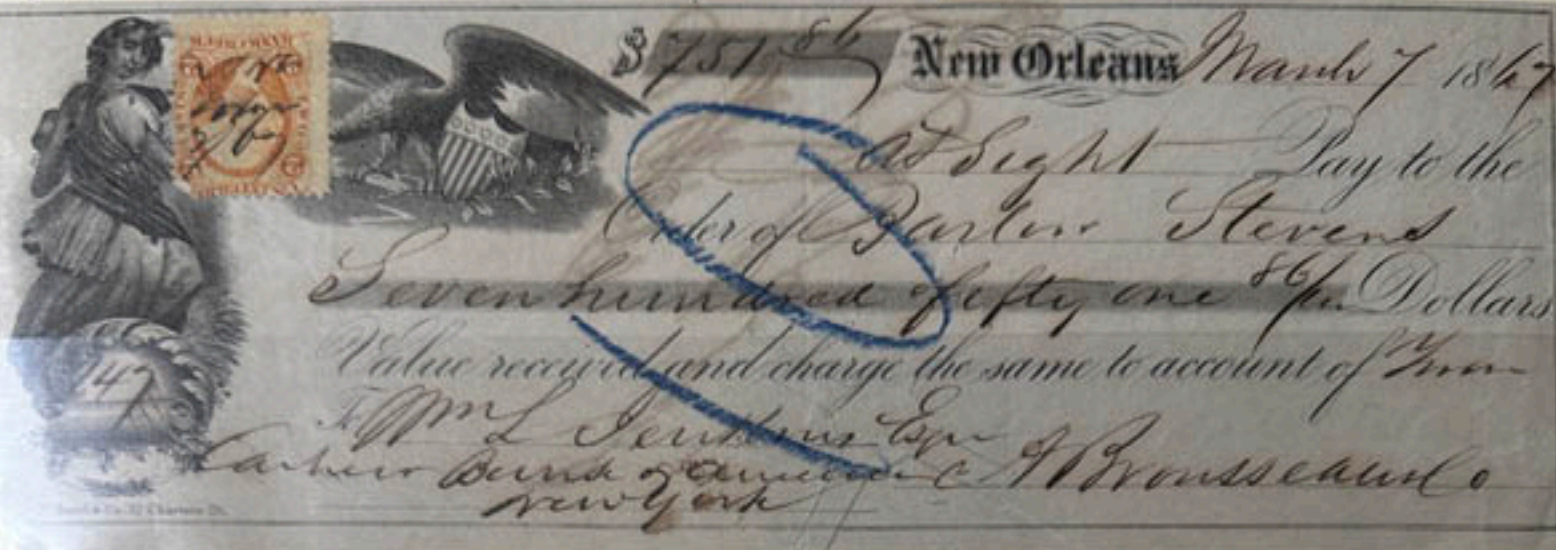 $ 751 86 New Orleans March 7 1867
At Sight Pay to the
Order of Barlow Stevens
Seven hundred fifty one 86/ Dollars
Value received and charge the same to account of
To Wm L Jenkins Esqr
Cashier Bank of America A Brousseau & Co
New York
147